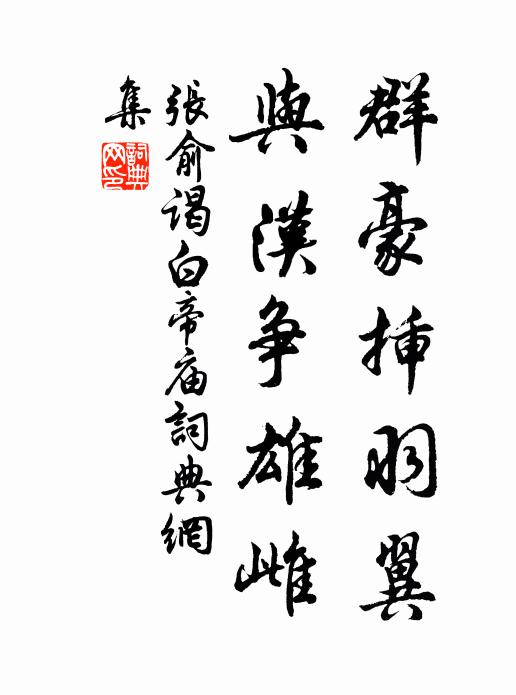 群豪挿羽翼
與漢争雄雌
張俞謁白帝庙詞典網
集
詞典
网印